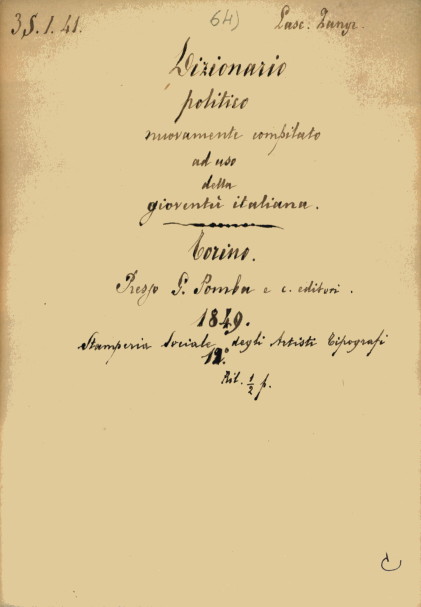 3S.1.41.
64)
Lasc. Zangr.
Dizionario
politico
nuovamente compilato
ad uso
della
gioventù italiana.
Torino.
Presso G. Pomba e c. editori.
1849.
Stamperia Sociale degli Artisti Tipografi
12°.
Ril. 1/2 p.